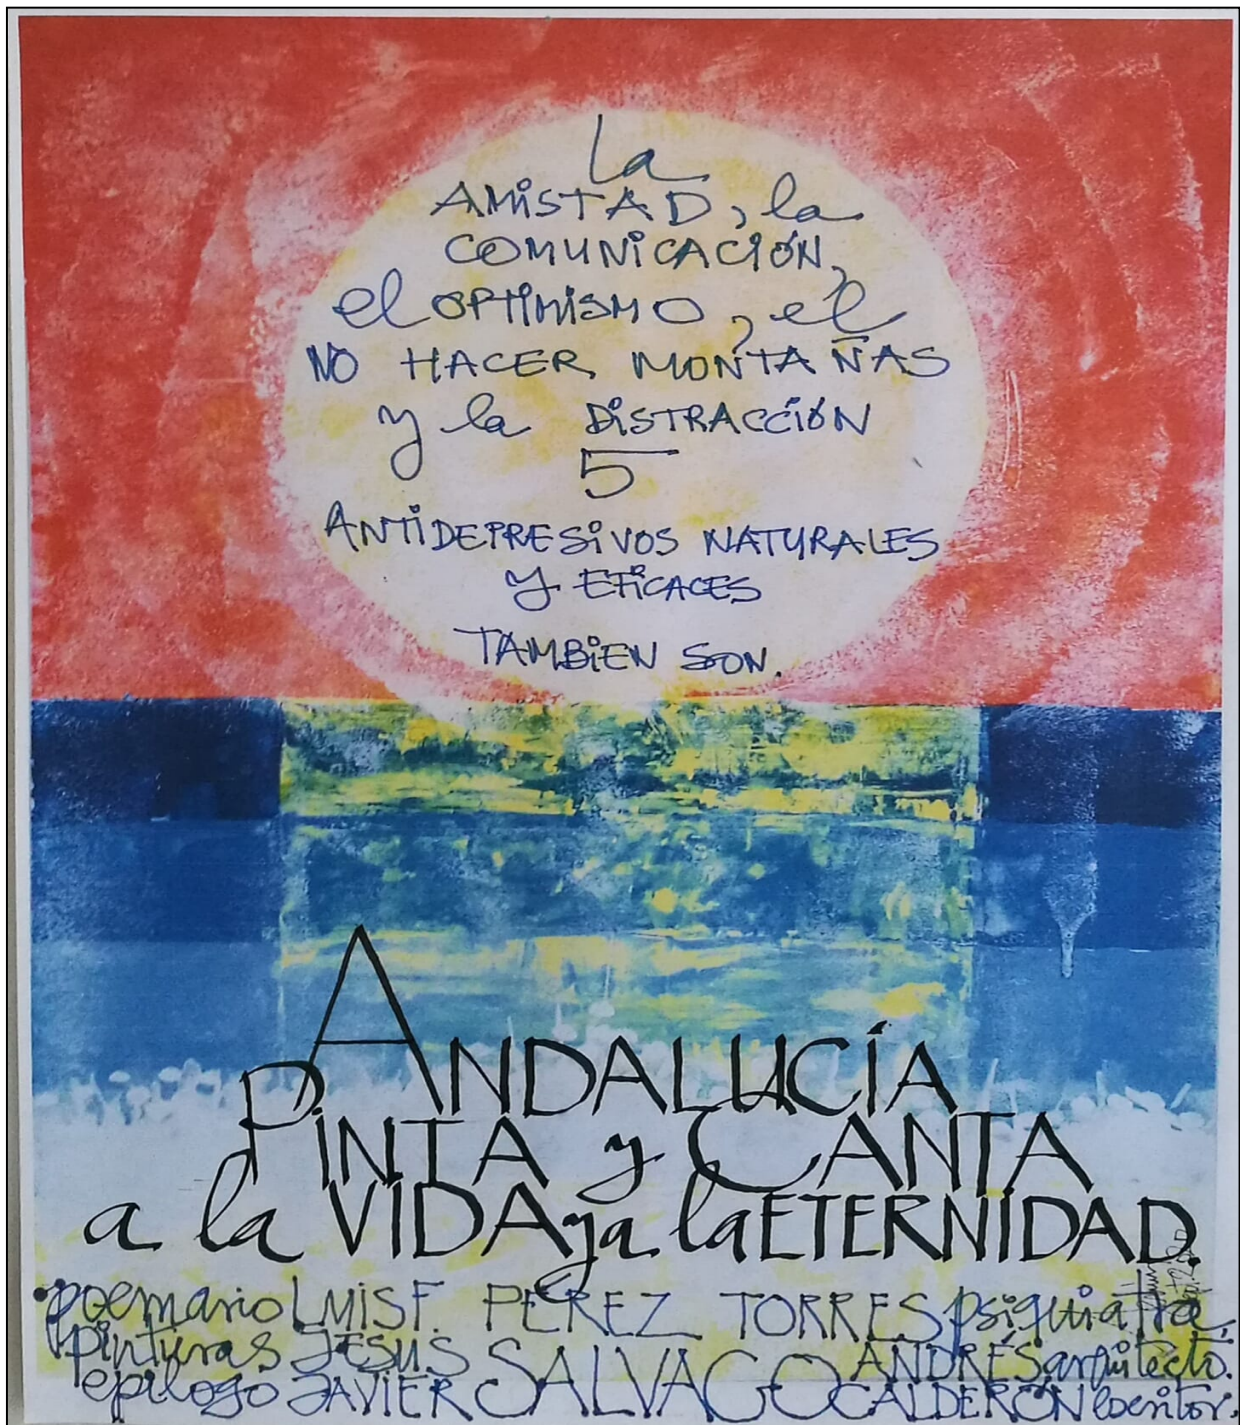 La
AMISTAD, la
COMUNICACIÓN,
el OPTIMISMO, el
NO HACER MONTAÑAS
y la DISTRACCIÓN
5
ANTIDEPRESIVOS NATURALES
y EFICACES
TAMBIEN SON.
ANDALUCÍA
PINTA y CANTA
a la VIDA y a la ETERNIDAD.
poemario LUIS F. PÉREZ TORRES psiquiatra,
pinturas JESUS SALVAGO ANDRÉS arquitecto.
epílogo JAVIER SALVAGO CALDERÓN escritor.